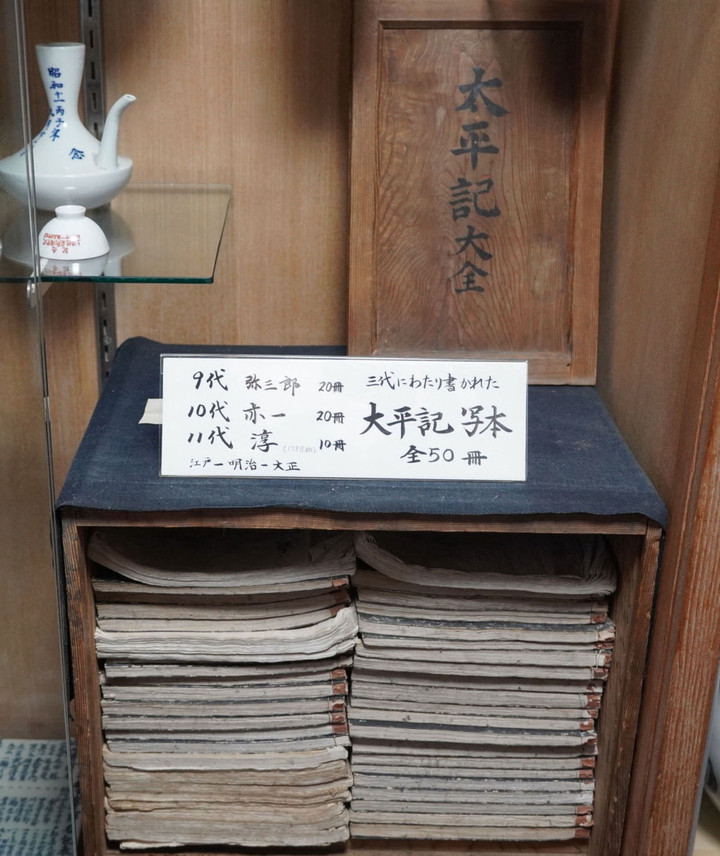 太平記大全
三代にわたり書かれた
大平記 写本
全50冊
9代 弥三郎 20冊
10代 亦一 20冊
11代 淳 10冊
江戸ー明治ー大正
昭和十一丙子年
念